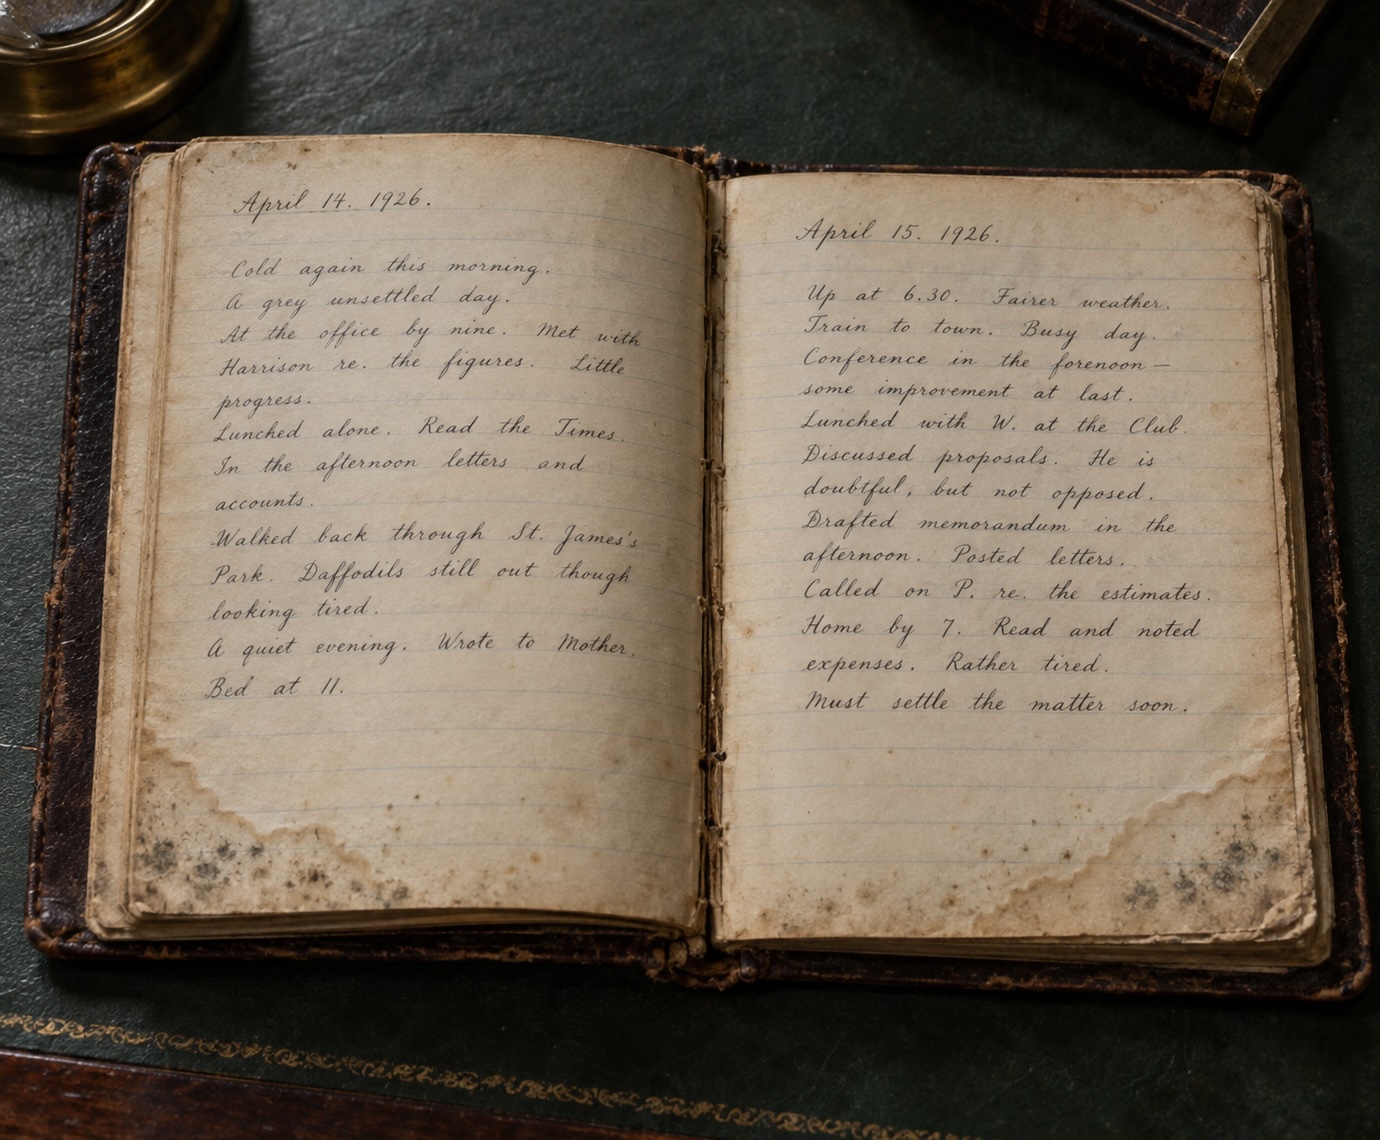 April 14. 1926.
Cold again this morning.
A grey unsettled day.
At the office by nine. Met with
Harrison re. the figures. Little
progress.
Lunched alone. Read the Times.
In the afternoon letters and
accounts.
Walked back through St. James's
Park. Daffodils still out though
looking tired.
A quiet evening. Wrote to Mother.
Bed at 11.
April 15. 1926.
Up at 6.30. Fairer weather.
Train to town. Busy day.
Conference in the forenoon—
some improvement at last.
Lunched with W. at the Club.
Discussed proposals. He is
doubtful, but not opposed.
Drafted memorandum in the
afternoon. Posted letters.
Called on P. re. the estimates.
Home by 7. Read and noted
expenses. Rather tired.
Must settle the matter soon.